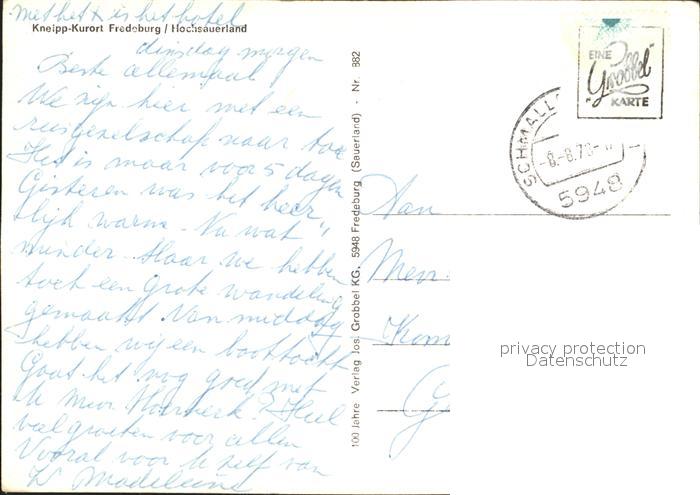 met het x is het hotel
Kneipp-Kurort Fredeburg / Hochsauerland
dinsdag morgen
Beste allemaal
We zijn hier met een
reisgezelschap naar toe
Het is maar voor 5 dagen
Gisteren was het heer
lijk warm. Nu wat
minder. Maar we hebben
toch een grote wandeling
gemaakt. Van middag
hebben wij een boottocht
Gaat het nog goed met
U mevr. ? Heel
veel groeten voor allen
Vooral voor U zelf van
Zr Madeleine
100 Jahre Verlag Jos. Grobbel KG, 5948 Fredeburg (Sauerland) - Nr. 882
EINE
Grobbel
KARTE
SCHMALL
-8.-8.7
5948
Aan
Mevr.
Kon
G
privacy protection
Datenschutz